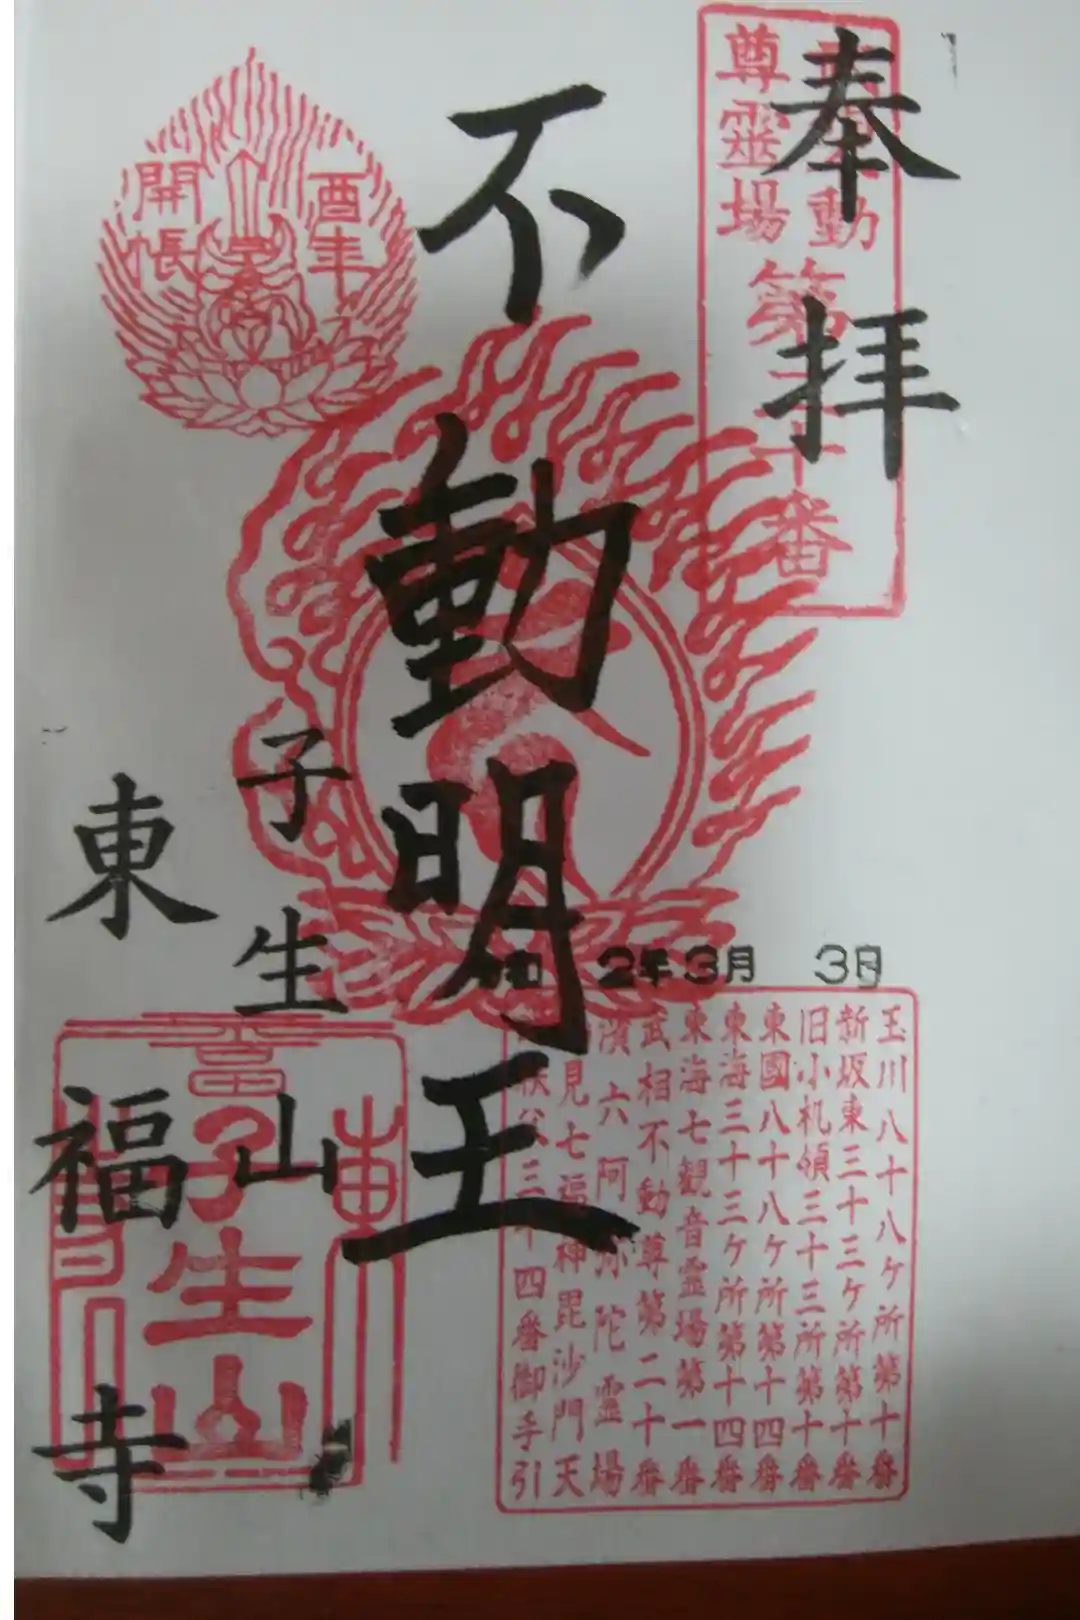 奉拝
動
尊靈場
第二十番
不動明王
酉年
開帳
2年3月 3日
玉川八十八ケ所第十番
新坂東三十三ケ所第十番
旧小机領三十三所第十番
東國八十八ケ所第十四番
東海三十三ケ所第十四番
東海七観音霊場第一番
武相不動尊第二十番
六阿弥陀霊場
見七福神毘沙門天
四番御手引
子生山
東福寺
子生山